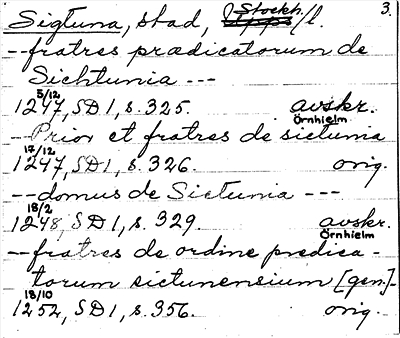 Sigtuna, stad, Stockh. Upps/l. 3.
--fratres prædicatorum de
Sichtunia ---
5/12
1247, SD 1, s. 325. avskr.
Örnhielm
--Prior et fratres de sictunia
17/12
1247, SD 1, s. 326. orig.
--domus de Sictunia ---
18/2
1248, SD 1, s. 329. avskr.
Örnhielm
--fratres de ordine predica-
torum sictunensium [gen.]-
18/10
1252, SD 1, s. 356. orig.